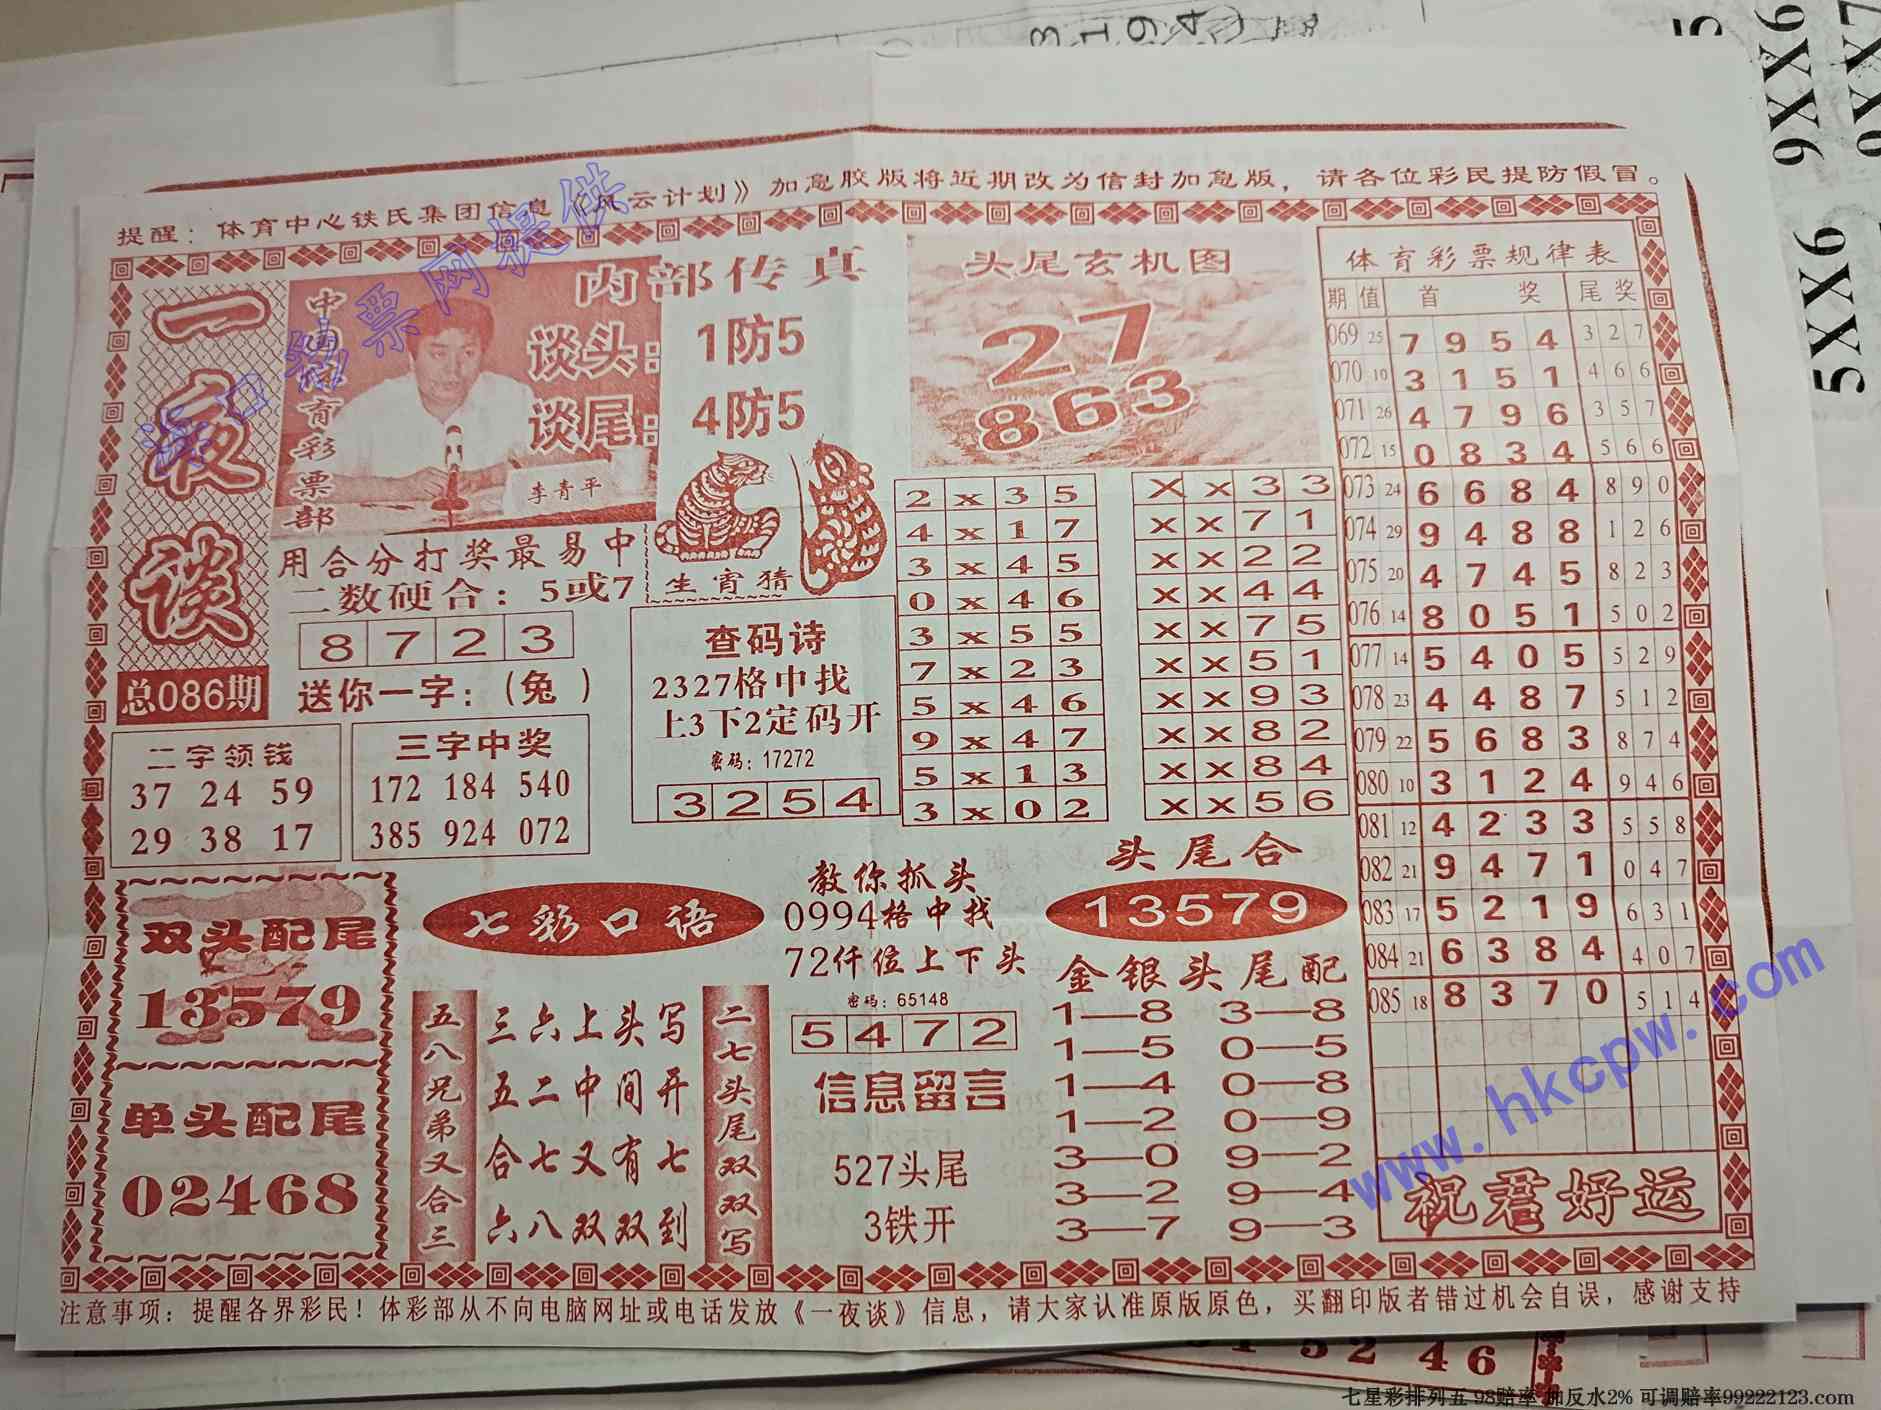 提醒：体育中心铁氏集团信息《风云计划》加急胶版将近期改为信封加急版，请各位彩民提防假冒。
一夜谈
总086期
中国体育彩票部
李青平
内部传真
谈头：1防5
谈尾：4防5
用合分打奖最易中
二数硬合：5或7
8 7 2 3
送你一字：（兔 ）
生宵猜
头尾玄机图
27
863
查码诗
2327格中找
上3下2定码开
密码：17272
3 2 5 4
二字领钱
37 24 59
29 38 17
三字中奖
172 184 540
385 924 072
2 x 3 5
4 x 1 7
3 x 4 5
0 x 4 6
3 x 5 5
7 x 2 3
5 x 4 6
9 x 4 7
5 x 1 3
3 x 0 2
X x 3 3
X X 7 1
X X 2 2
X X 4 4
X X 7 5
X X 5 1
X X 9 3
X X 8 2
X X 8 4
X X 5 6
体育彩票规律表
期 值 首 奖 尾 奖
069 25 7 9 5 4 3 2 7
070 10 3 1 5 1 4 6 6
071 26 4 7 9 6 3 5 7
072 15 0 8 3 4 5 6 6
073 24 6 6 8 4 8 9 0
074 29 9 4 8 8 1 2 6
075 20 4 7 4 5 8 2 3
076 14 8 0 5 1 5 0 2
077 14 5 4 0 5 5 2 9
078 23 4 4 8 7 5 1 2
079 22 5 6 8 3 8 7 4
080 10 3 1 2 4 9 4 6
081 12 4 2 3 3 5 5 8
082 21 9 4 7 1 0 4 7
083 17 5 2 1 9 6 3 1
084 21 6 3 8 4 4 0 7
085 18 8 3 7 0 5 1 4
祝君好运
双头配尾
13579
单头配尾
02468
七彩口语
五八兄弟又合三
三六上头写
五二中间开
合七又有七
六八双双到
二七头尾双双写
教你抓头
0994格中找
72仟位上下头
密码：65148
5 4 7 2
信息留言
527头尾
3铁开
头尾合
13579
金银头尾配
1—8 3—8
1—5 0—5
1—4 0—8
1—2 0—9
3—0 9—2
3—2 9—4
3—7 9—3
注意事项：提醒各界彩民！体彩部从不向电脑网址或电话发放《一夜谈》信息，请大家认准原版原色，买翻印版者错过机会自误，感谢支持
海口彩票网提供
www.hkcpw.com
5XX6
9XX6
5 2 4 6
七星彩排列五 98赔率 加反水2% 可调赔率99222123.com